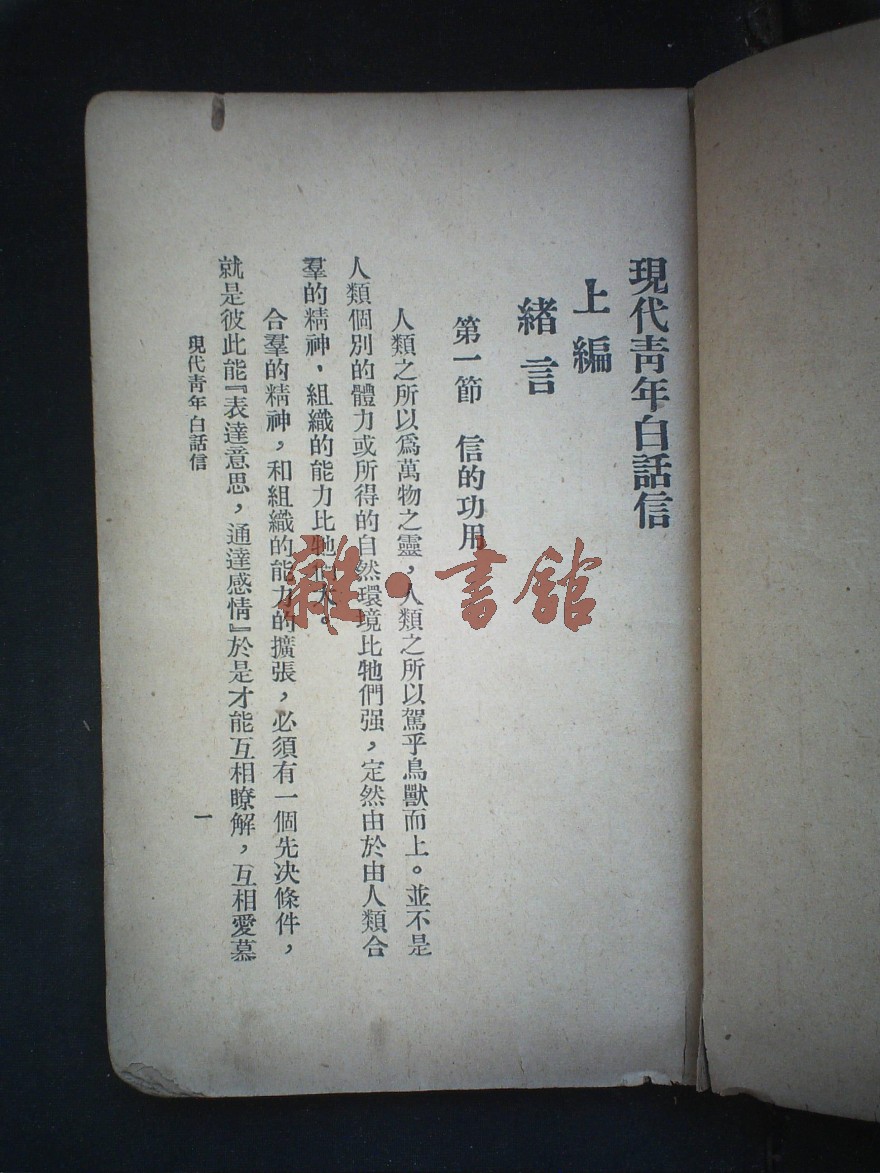 現代青年白話信
上編
緒言
第一節 信的功用
人類之所以為萬物之靈，人類之所以駕乎鳥獸而上。並不是
人類個別的體力或所得的自然環境比牠們强，定然由於由人類合
羣的精神，組織的能力比牠們大。
合羣的精神，和組織的能力的擴張，必須有一個先决條件，
就是彼此能『表達意思，通達感情』於是才能互相瞭解，互相愛慕
現代青年白話信
一
雜·書館